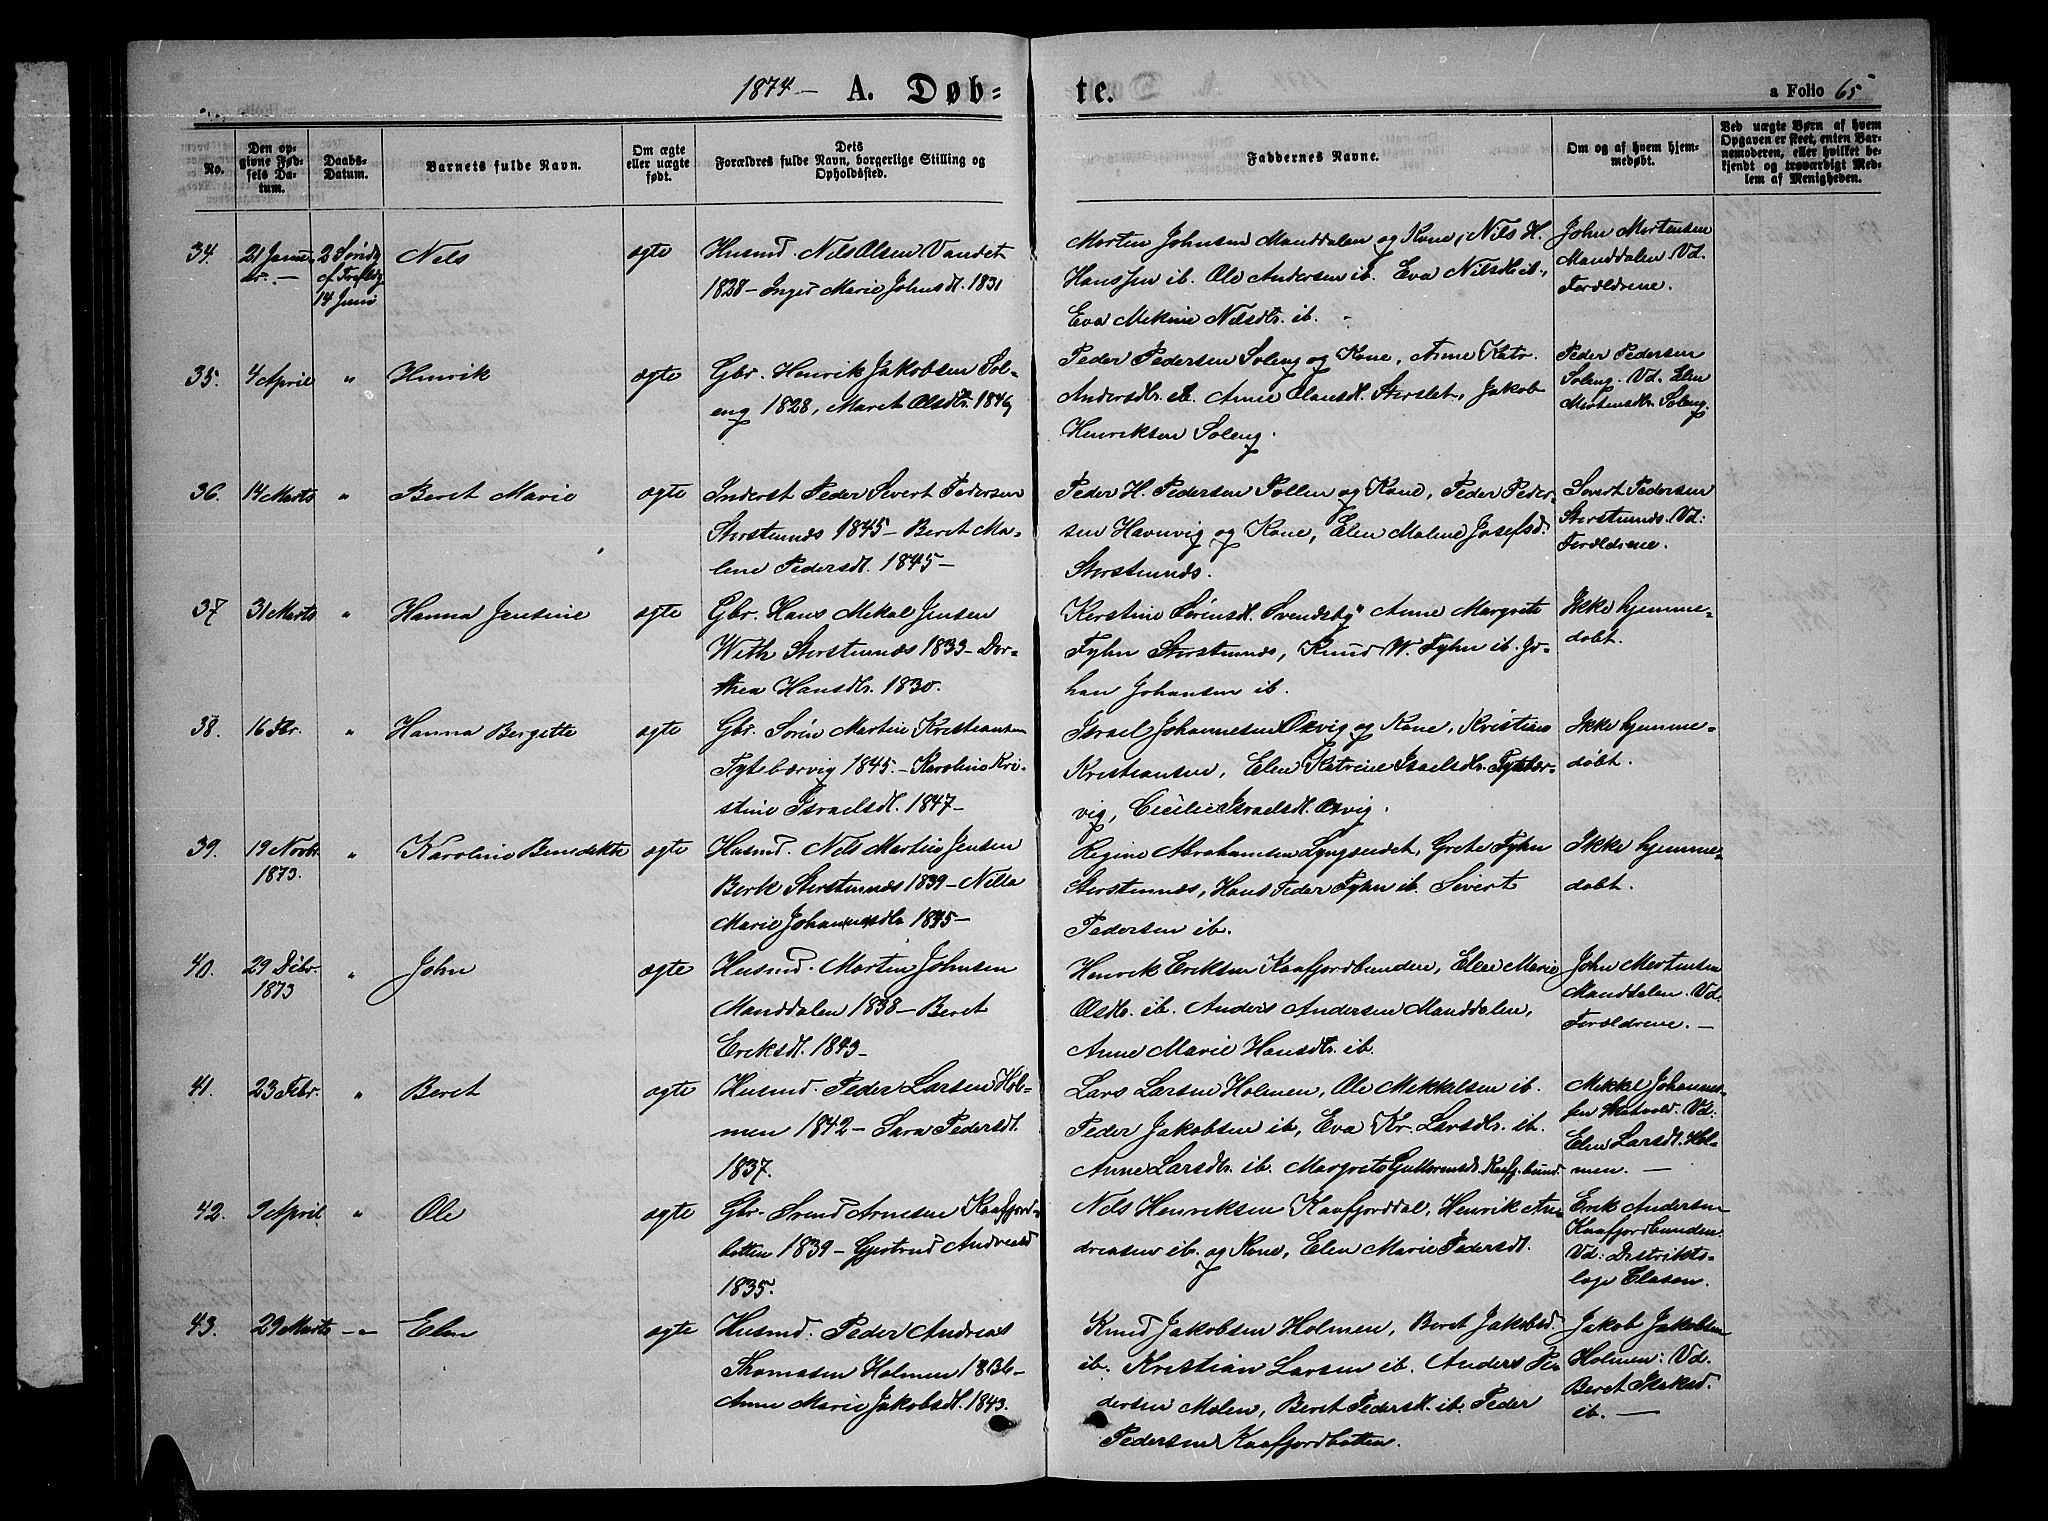 1874 — A. Døb= te. a Folio 65
No.
Den op-
givne Fød-
sels Da-
tum.
Daabs-
Datum.
Barnets fulde Navn.
Om ægte
eller uægte
født.
Dets
Forældres fulde Navn, borgerlige Stilling og
Opholdssted.
Faddernes Navne.
Om og af hvem hjem-
medøbt.
Ved uægte Børn af hvem
Opgaven er skeet, enten Bar-
nemoderen, eller hvilket be-
kjendt og troværdigt Med-
lem af Menigheden.
34.
21 Janu-
ar. —
2 Søndg
14 Juni
Nels
ægte
Husmd. Nels Olsen Vandet
1828 — Inger Marie Johnsdt. 1831
Morten Johnsen Manddalen og Kone, Nils H.
Hanssen ib. Ole Andersen ib. Eva Nilsdt. ib.,
Eva Mekine Nilsdtr. ib. —
John Mortensen
Manddalen Vd.
Forældrene.
35.
4 April
"
Henrik
ægte
Gbr. Henrik Jakobsen Sol-
eng 1828, Maret Olsdtr. 1846
Peder Pedersen Soleng og Kone, Anne Katr.
Andersdtr. ib. Anne Olausdt. Storslet, Jakob
Henriksen Soleng.
Peder Pedersen
Soleng. Vd. Elen
Mortensdtr. Soleng.
36.
14 Marts
"
Beret Marie
ægte
Inderst Peder Sivert Pedersen
Storstennæs 1845 — Beret Ma-
lene Pedersdt. 1845 —
Peder H. Pedersen Pollen og Kone, Peder Peder-
sen Havnvig og Kone, Elen Malene Josefsd.
Storstennæs.
Sivert Pedersen
Storstennæs. Vd:
Forældrene.
37
31 Marts
"
Hanna Jensine
ægte
Gbr. Hans Mekal Jensen
Weth Storstennæs 1833 — Dor-
thea Hansdtr. 1830.
Kerstine Sörensdt. Svendsby, Anne Margrete
Fyhn Storstennæs, Knud W. Fyhn ib. Jo-
han Johansen ib.
Ikke hjemme-
døbt.
38.
16 Fbr.
"
Hanna Bergette
ægte
Gbr. Sörin Martin Kristiansen
Tytebærvig 1845. — Karoline Kri-
stine Israelsdt. 1847 —
Israel Johannesen Oxvig og Kone, Kristian
Kristiansen, Elen Katrine Israelsdtr. Tytebær-
vig, Cicilie Israelsdt. Oxvig.
Ikke hjemme-
døbt.
39.
19 Novbr.
1873.
"
Karoline Benedikte
ægte
Husmd. Nels Martin Jensen
Berk Storstennæs 1839 — Nilla
Marie Johannesdtr 1835 —
Regine Abrahamsen Lyngseidet, Grete Fyhn
Storstennæs, Hans Peder Fyhn ib. Sivert
Pedersen ib.
Ikke hjemme-
døbt.
40.
29 Debr.
1873
"
John
ægte
Husmd. Martin Johnsen
Manddalen 1838 — Beret
Eriksdt. 1843 —
Henrik Eriksen Kaafjordbunden, Elen Marie
Olsdtr. ib. Anders Andersen Manddalen,
Anne Marie Hansdtr. ib.
John Mortensen
Manddalen. Vd.
Forældrene. —
41.
23 Febr.
"
Beret
ægte
Husmd. Peder Larsen Hol-
men 1842 — Sara Pedersdt.
1837.
Lars Larsen Holmen, Ole Mekkelsen ib.
Peder Jakobsen ib, Eva Kr. Larsdtr. ib.
Anne Larsdtr. ib. Margrete Guttormsdt. Kaafj.bund.
Mekkel Johannes-
sen Skatvold. Vd:
Elen Larsdt. Hol-
men. —
42.
9 April
"
Ole
ægte
Gbr. Svend Arnesen Kaafjord-
botten 1839 — Gjertrud Andreasd
1835.
Nels Henriksen Kaafjorddal, Henrik An-
dreasen ib. og Kone, Elen Marie Pedersdt.
Erik Andersen
Kaafjordbunden.
Vd: Distrikts-
læge Clason.
43.
29 Marts
— " —
Elen
ægte
Husmd. Peder Andreas
Thomasen Holmen 1836 —
Anne Marie Jakobsdt. 1843.
Knud Jakobsen Holmen, Beret Jakobsd.
ib. Kristian Larsen ib. Anders Pe-
dersen Molen, Beret Pedersdt. ib. Peder
Pedersen Kaafjordbotten.
Jakob Jakobsen
Holmen: Vd.
Beret Isaksd.
ib. —